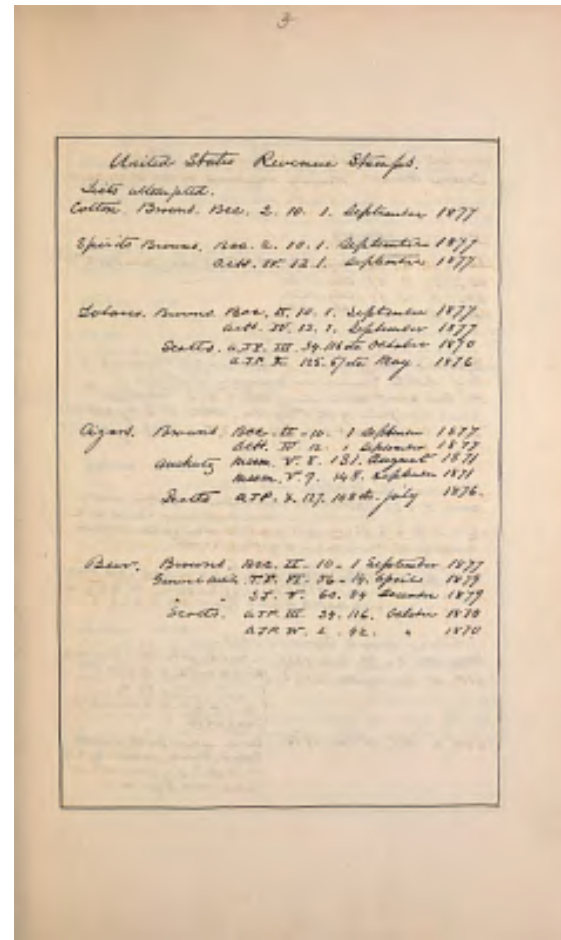 3
United States Revenue Stamps.
Lists attempted.
Cotton. Browns. Bee. 2. 10. 1. September 1877
Spirits Browns. Bee. 2. 10. 1. September 1877
IV. 12. 1. September 1877.
Tobacco. Browns Bee. II. 10. 1. September 1877.
IV. 12. 1. September 1877
Scotts. A.J.P. III. 34. 116 October 1870
A.J.P. X. 125. May. 1876
Cigars. Browns. Bee. II-10. 1 September 1877
IV 12. 1 September 1877
V. 8. 131. August 1871
V. 9. 148. September 1871
Scotts A.J.P. X. 127. July 1876.
Beer. Browns. Bee. II-10-1 September 1877
VI. 56-14. April 1879
V. 60. 84 December 1879
Scotts. A.J.P. III. 34. 116. October 1870
A.J.P. IV. 2. 42. " 1870